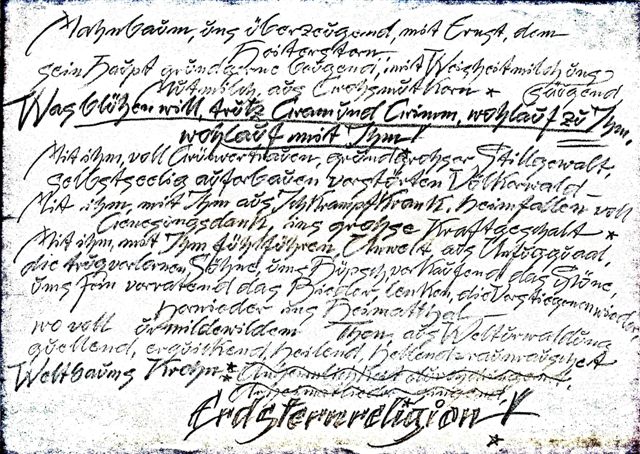 Mahnbaum, uns überzeugend, mit Ernst, dem
Heiterstern
sein Haupt grundgerne beugend, mit Weisheitmilch uns
Mutmilch, aus Großmuthorn * säugend
Was blühen will, trutz Gram und Grimm, wohlauf zu Ihm,
wohlauf mit Ihm!
Mit ihm, voll Grünvertrauen, grundgrohser Stillgewalt,
selbstseelig auferbauen verstörten Völkerwald
Mit ihm, mit Ihm aus Ichkrampf krank, heimfallen voll
Genesungsdank, ins grohse Kraftgeschalt *
Mit ihm, mit Ihm Unwelt, aus Unfugquaal,
die trugverlornen Söhne, ums Hüpsch verkaufend das Schöne,
ums Fein verratend das Bieder, lenken, die Verstiegenen wieder,
hernieder ins Heimatthal
wo voll urmildewildem Thon, aus Welturwaldung
quellend, erquickend, heilend, rauscht
Weltbaums Krohn *
Erdsternreligion !
*